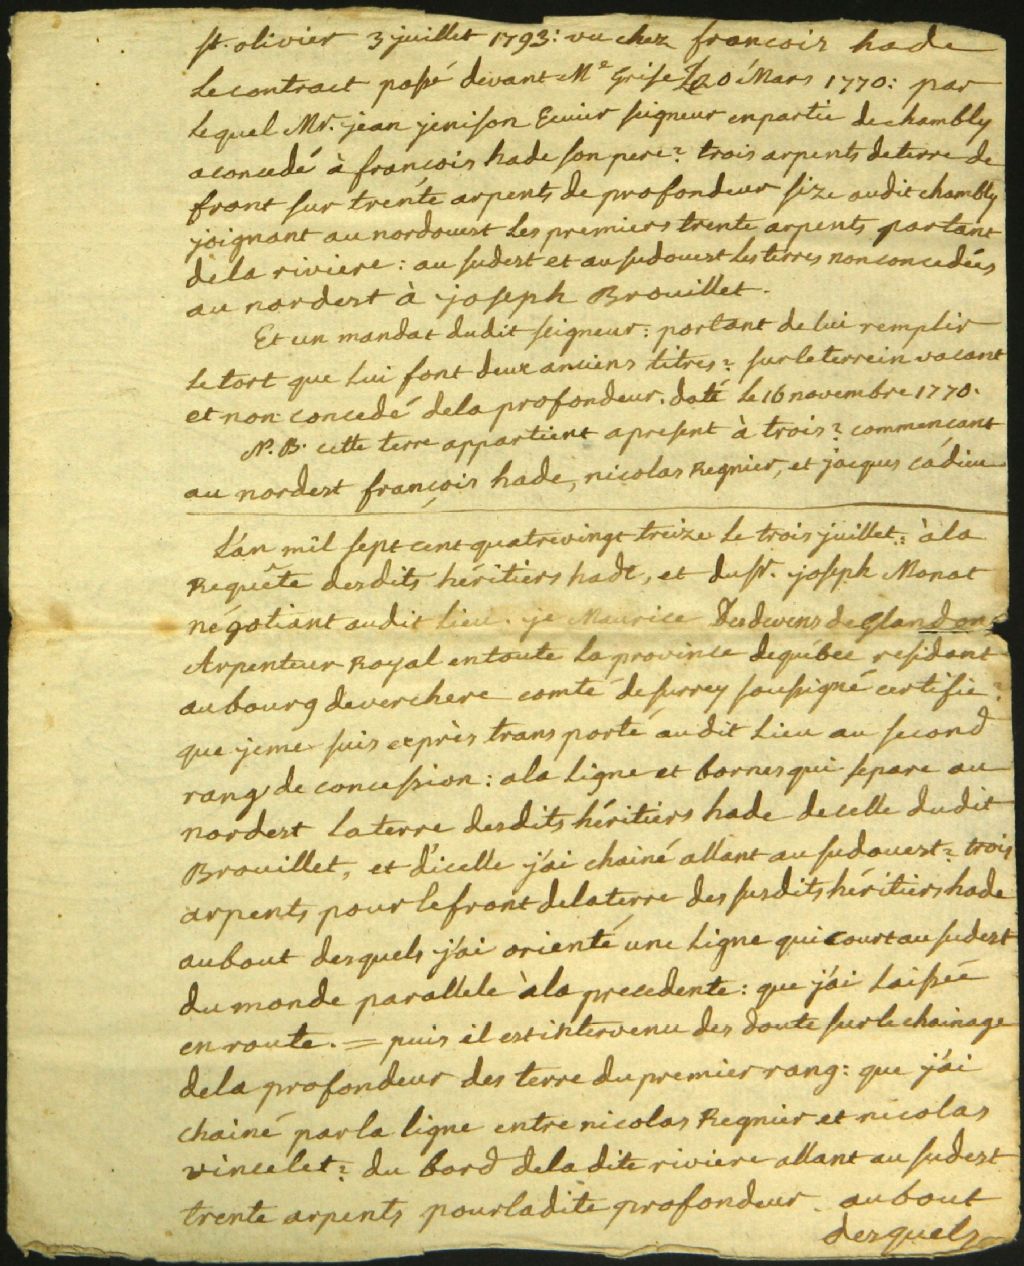 st. olivier 3 juillet 1793: vu chez francois hade
Le contract passé devant Me Grisé 20 Mars 1770: par
Lequel Mr. jean jenison Ecuier seigneur en partie de chambly
a concedé à françois hade son pere? trois arpents de terre de
front sur trente arpents de profondeur size audit chambly
joignant au nordouest Les premiers trente arpents partant
de la riviere: au sudest et au sudouest les terres non concedées
au nordest à joseph Brouillet.
Et un mandat dudit seigneur: portant de lui remplir
Le tort que Lui font deux anciens titres? sur le terrein vacant
et non concedé de la profondeur. daté Le 16 novembre 1770.
N.B. cette terre appartient apresent à trois? commencant
au nordest françois hade, nicolas Regnier, et jacques cadieu
L'an mil sept cent quatrevingt treize Le trois juillet: à la
Requête desdits héritiers hade, et du sr. joseph Monat
négotiant audit Lieu. je Maurice Desdevens de Glandons
Arpenteur Royal en toute La province de québec residant
au bourg de verchere comté de surrey soussigné certifie?
que je me suis exprès transporté audit Lieu au second
rang de concession: a la Ligne et bornes qui separe au
nordest La terre desdits héritiers hade de celle dudit
Brouillet, et d'icelle j'ai chainé allant au sudouest? trois
arpents pour le front de la terre des susdits héritiers hade
au bout desquels j'ai orienté une Ligne qui court au sudest
du monde parallele à la precedente: que j'ai Laissée
en route. = puis il est intervenu des doute sur le chainage
de la profondeur des terre du premier rang: que j'ai
chainé par la ligne entre nicolas Regnier et nicolas
vincelet? du bord de la dite riviere allant au sudest
trente arpents pour ladite profondeur. au bout
desquels